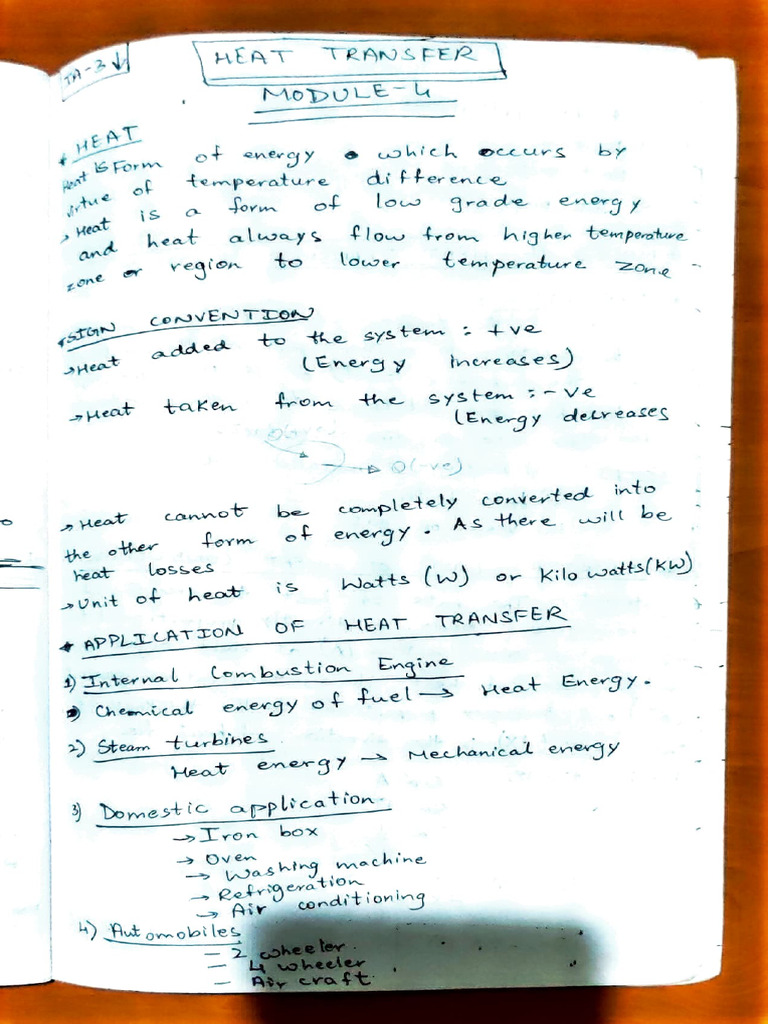 IA-3↓
HEAT TRANSFER
MODULE-4
* HEAT
Heat is Form of energy which occurs by
virtue of temperature difference
→ Heat is a form of low grade energy
and heat always flow from higher temperature
zone or region to lower temperature zone
* SIGN CONVENTION
→ Heat added to the system : +ve
(Energy increases)
→ Heat taken from the system :- -ve
(Energy decreases
Q(-ve)
→ Heat cannot be completely converted into
the other form of energy. As there will be
heat losses
→ Unit of heat is Watts (W) or Kilo watts(KW)
* APPLICATION OF HEAT TRANSFER
1) Internal Combustion Engine
Chemical energy of fuel → Heat Energy.
2) Steam turbines
Heat energy → Mechanical energy
3) Domestic application.
→ Iron box
→ Oven
→ Washing machine
→ Refrigeration
→ Air conditioning
4) Automobiles
- 2 wheeler.
- 4 wheeler
- Air craft.